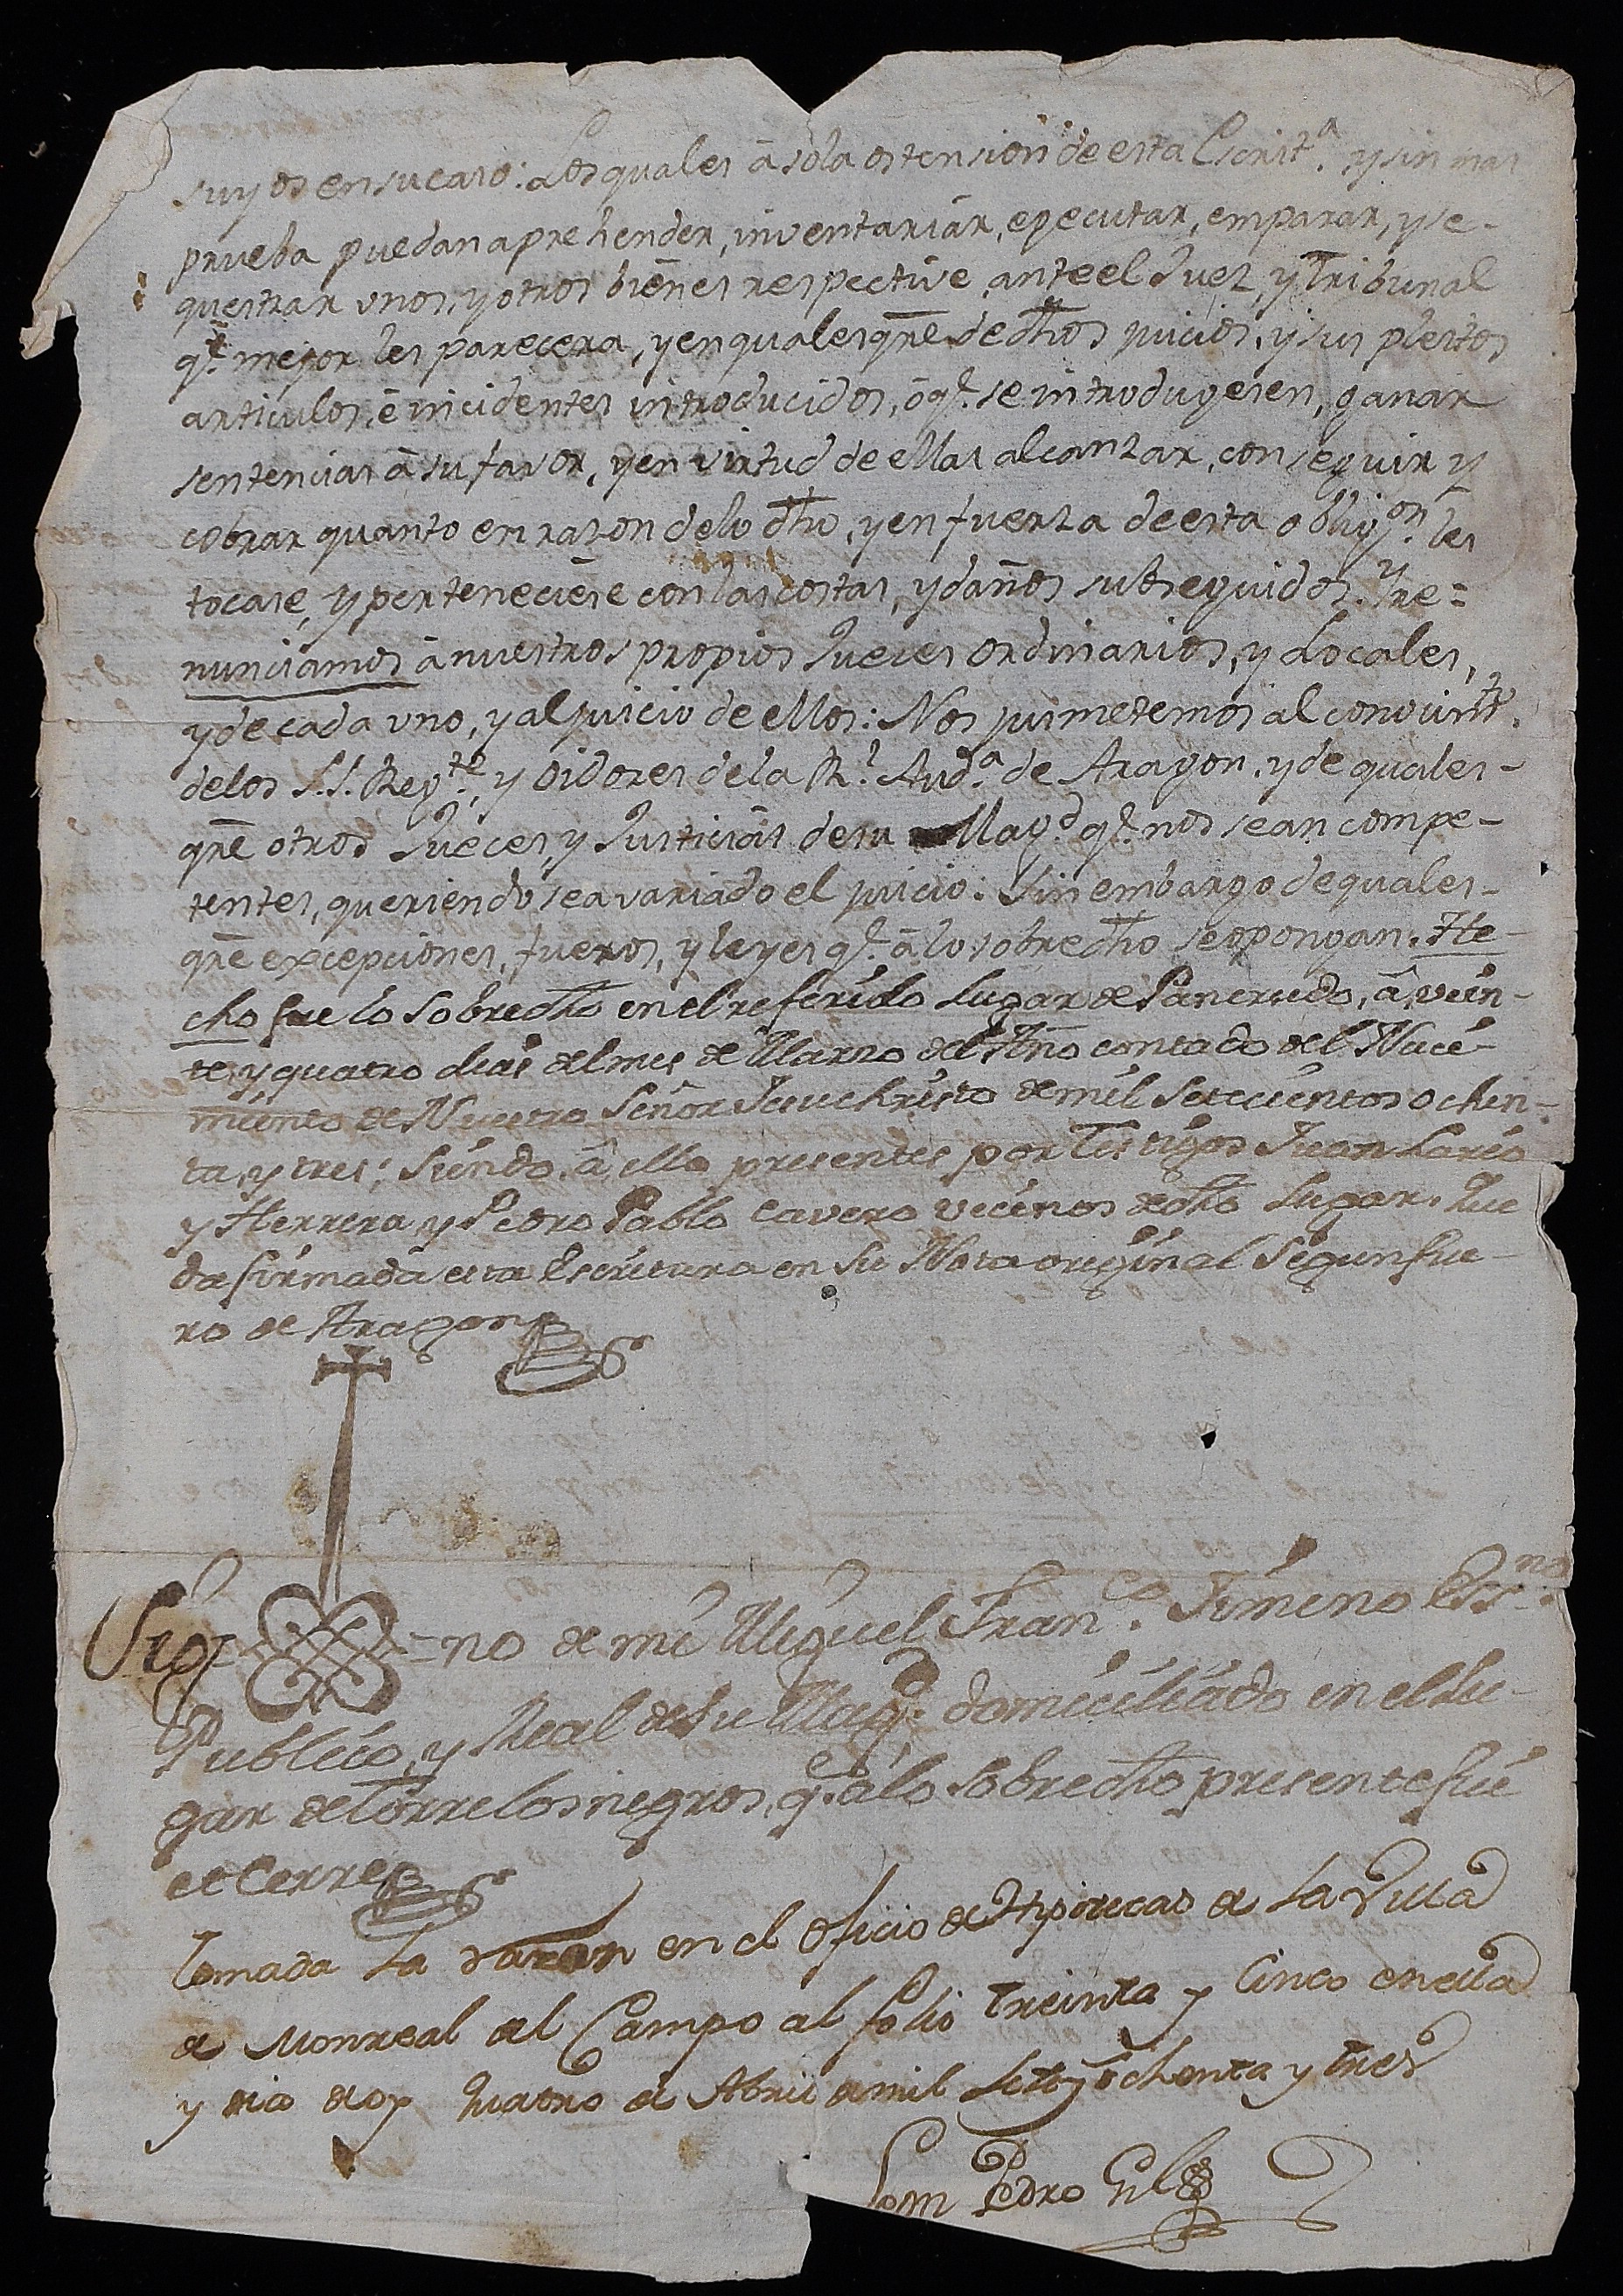 suyos en su caso: Los quales â sola ostension de esta Escrit.ª y sin mas
prueba puedan aprehender, inventariar, egecutar, emparar, y se-
questrar unos, y otros biẽnes respectivè, ante el Juez, y Tribunal
q.e mejor les parecera, y en qualesqrẽ de dĥos juicios, y sus pleitos
articulos, ê incidentes introducidos, ô q.e se introdugesen, ganar
sentencias â su favor, y en virtud de ellas alcanzar, conseguir y
cobrar quanto en razon de lo dĥo, y en fuerza de esta oblig.on les
tocase, y perteneciese con las costas, y daños subseguidos. Y re=
nunciamos â nuestros propios Jueces Ordinarios, y Locales,
y de cada uno, y al juicio de ellos: Nos jusmetemos al conocim.to
de los S.S. Reg.te, y Oidores de la R.l Aud.ª de Aragon, y de quales-
qrẽ otros Jueces, y Justicias de su Mag.d q.e nos sean compe-
tentes, queriendo sea variado el juicio: Sin embargo de quales-
qrẽ excepciones, fueros, y leyes q.e â lo sobredĥo se opongan. He-
cho fue lo sobredĥo en el referido Lugar de Pancrudo, â vein-
te, y quatro dias del mes de Marzo del Año contado del Naci-
miento de Nuestro Señor Jesuchristo de mil Setecientos ochen-
ta, y tres; Siendo â ello presentes por Testigos Juan Lario
y Herrera, y Pedro Pablo Cavero vecinos de dĥo Lugar. Que
da firmada esta Escritura en su Nota original Segun fue-
ro de Aragon
Sig= =no de mi Miguel Fran.co Ximeno Ess.no
Publico, y Real de Su Mag.d domiciliado en el Lu-
gar de Torre los negros, q.e â lo Sobredĥo presente fui
et Cerre
Tomada la razon en el Oficio de Hipotecas de la Villa
de Monreal del Campo al folio treinta y Cinco en ella
y dia de oy quatro de Abril de mil sett.s ochenta y tres
Pedro Gil